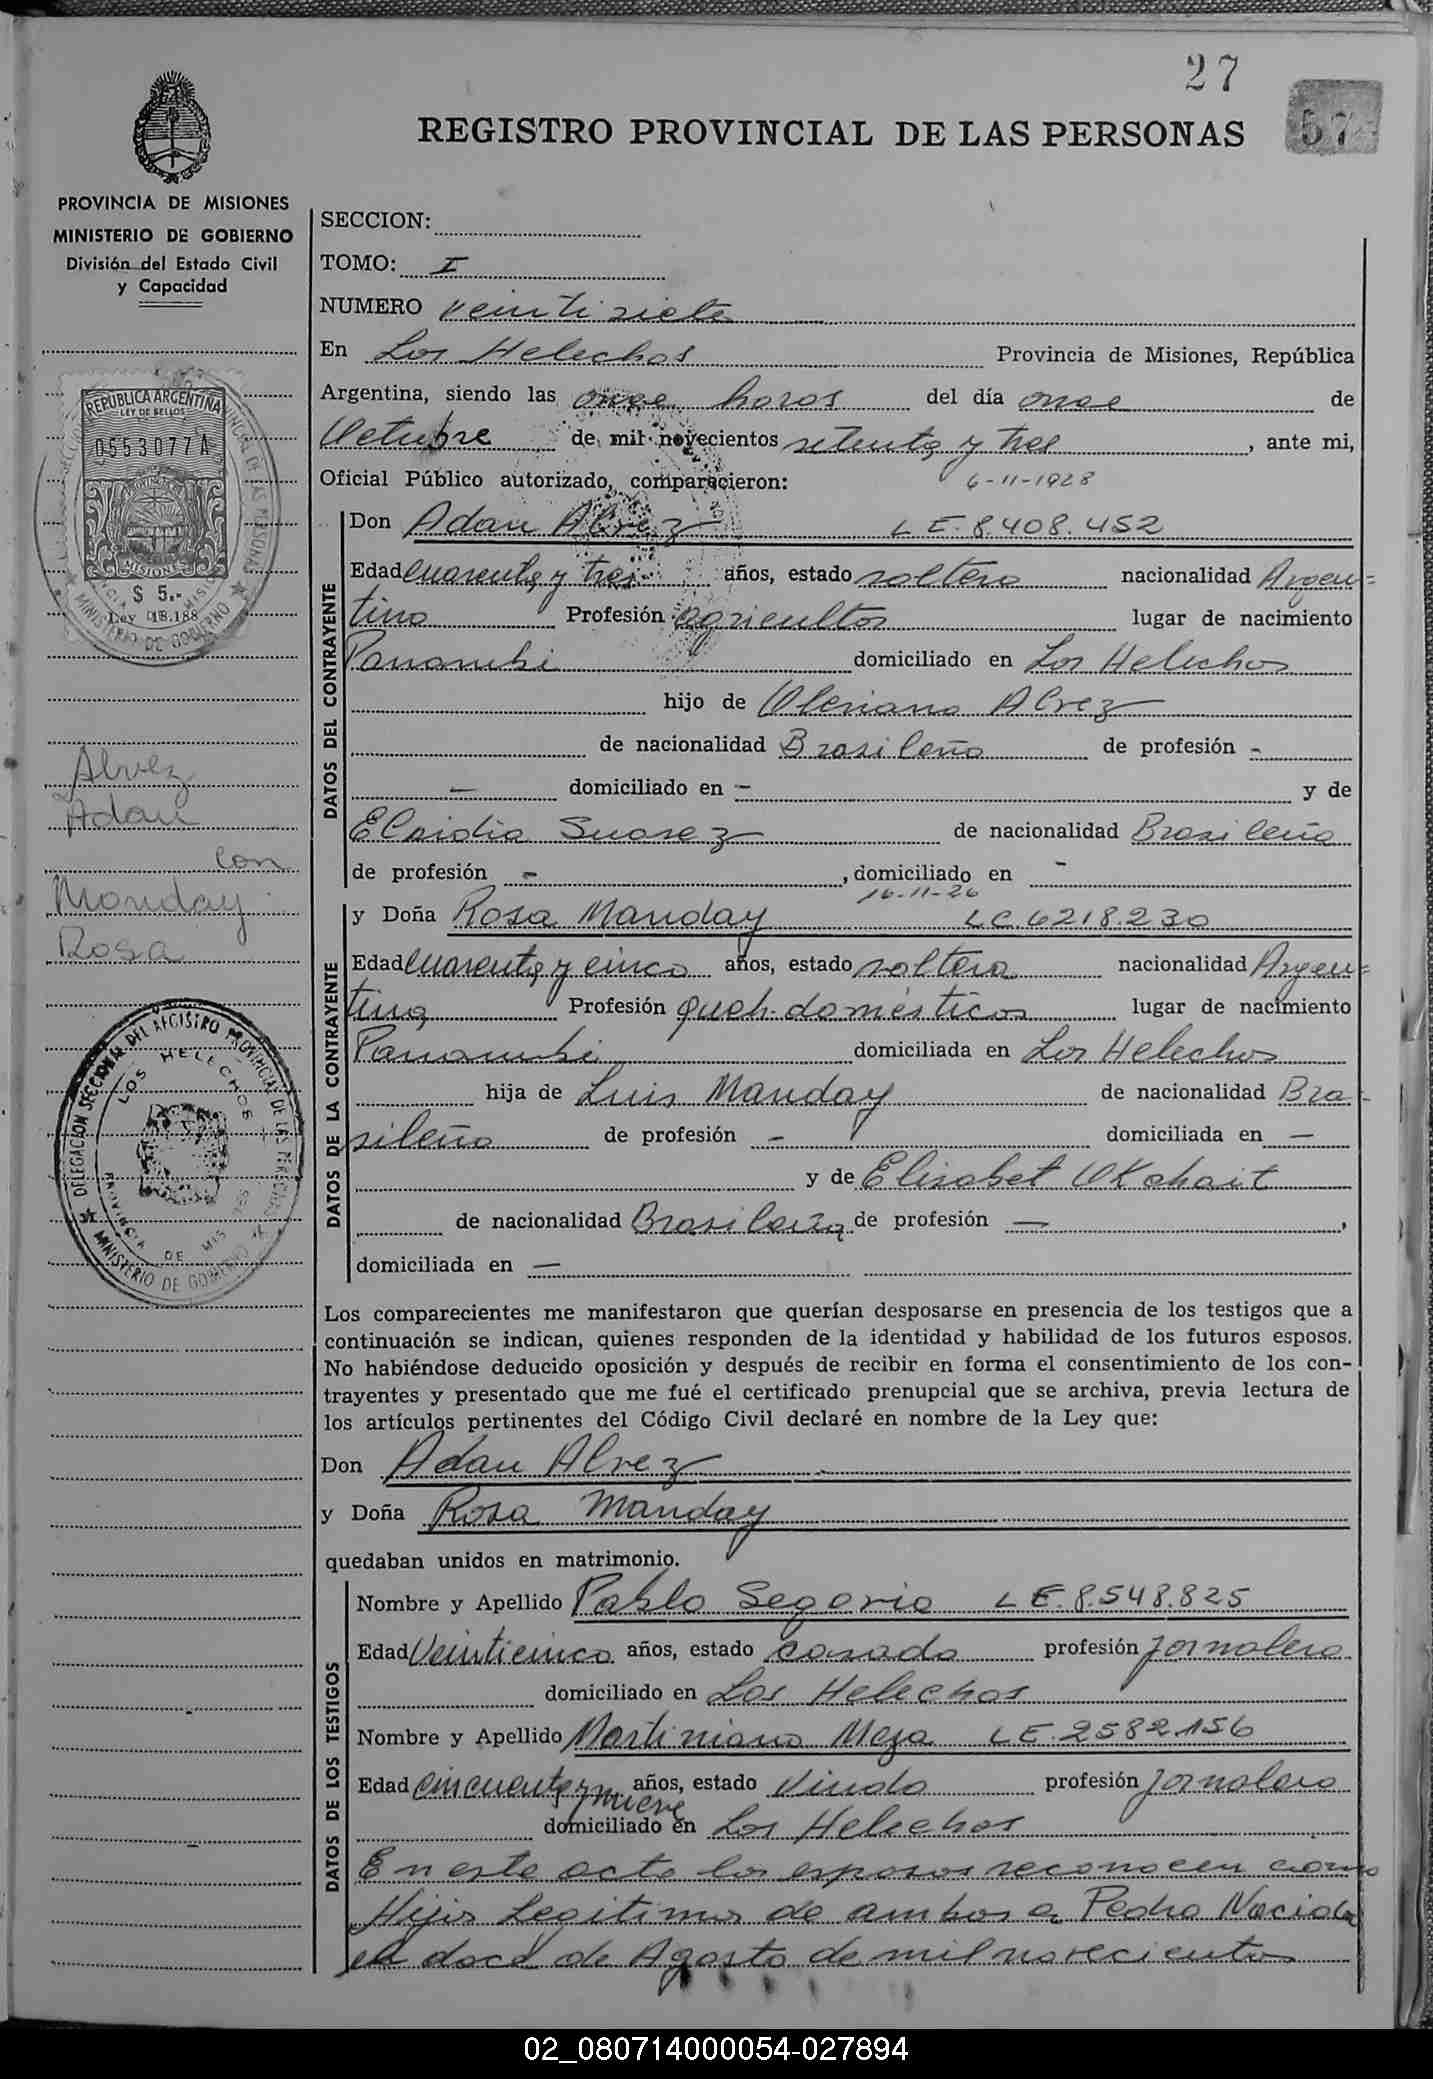 27
57
REGISTRO PROVINCIAL DE LAS PERSONAS
PROVINCIA DE MISIONES
MINISTERIO DE GOBIERNO
División del Estado Civil
y Capacidad
REPUBLICA ARGENTINA
LEY DE SELLOS
0553077A
MISIONES
$ 5.-
Alvez
Adan
con
Manday
Rosa
DELEGACION SECCIONAL DEL REGISTRO PROVINCIAL DE LAS PERSONAS
LOS HELECHOS
PROVINCIA DE MISIONES
MINISTERIO DE GOBIERNO
SECCION:
TOMO: I
NUMERO veintisiete
En Los Helechos Provincia de Misiones, República
Argentina, siendo las once horas del día once de
Octubre de mil novecientos setenta y tres, ante mi,
Oficial Público autorizado, comparecieron: 6-11-1928
DATOS DEL CONTRAYENTE
Don Adan Alvez LE.8.408.452
Edad cuarenta y tres años, estado soltero nacionalidad Argen=
tino Profesión agricultor lugar de nacimiento
Panambi domiciliado en Los Helechos
hijo de Alvez
de nacionalidad Brasileño de profesión -
- domiciliado en - y de
Suarez de nacionalidad Brasileña
de profesión -, domiciliado en -
16-11-26
DATOS DE LA CONTRAYENTE
y Doña Rosa Manday LC.6218.230
Edad cuarenta y cinco años, estado soltera nacionalidad Argen=
tina Profesión queh. domésticos lugar de nacimiento
Panambi domiciliada en Los Helechos
hija de Luis Manday de nacionalidad Bra-
sileño de profesión - domiciliada en -
y de Elisabet
de nacionalidad Brasileira de profesión -,
domiciliada en -
Los comparecientes me manifestaron que querían desposarse en presencia de los testigos que a
continuación se indican, quienes responden de la identidad y habilidad de los futuros esposos.
No habiéndose deducido oposición y después de recibir en forma el consentimiento de los con-
trayentes y presentado que me fué el certificado prenupcial que se archiva, previa lectura de
los artículos pertinentes del Código Civil declaré en nombre de la Ley que:
Don Adan Alvez
y Doña Rosa Manday
quedaban unidos en matrimonio.
DATOS DE LOS TESTIGOS
Nombre y Apellido Pablo Segovia LE.8.548.825
Edad Veinticinco años, estado casado profesión Jornalero
domiciliado en Los Helechos
Nombre y Apellido Martiniano Meza LE.2582156
Edad cincuenta y nueve años, estado Viudo profesión Jornalero
domiciliado en Los Helechos
En este acto los esposos reconocen como
Hijos Legitimos de ambos a Pedro Nacido
el doce de Agosto de mil novecientos
02_080714000054-027894